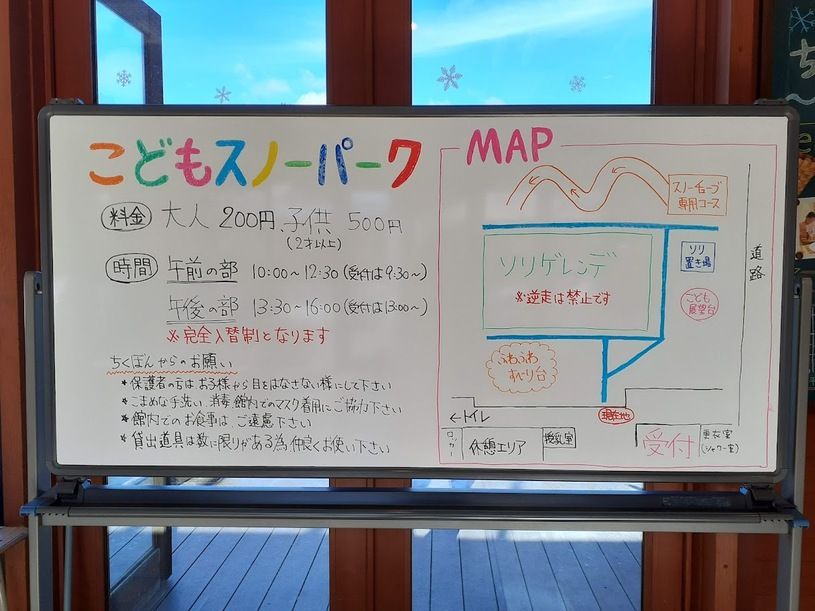 こどもスノーパーク
料金 大人 200円 子供 500円
(2才以上)
時間 午前の部 10:00～12:30 (受付は9:30～)
午後の部 13:30～16:00 (受付は13:00～)
※完全入替制となります
ちくぽんからのお願い
*保護者の方は お子様から目をはなさない様にして下さい
*こまめな手洗い、消毒、館内でのマスク着用にご協力下さい
*館内でのお食事は、ご遠慮下さい
*貸出道具は数に限りがある為仲良くお使い下さい
MAP
スノーチューブ
専用コース
ソリゲレンデ
※逆走は禁止です
ソリ
置き場
こども
展望台
道路
ふわふわ
すべり台
現在地
←トイレ
ロッカー
休憩エリア
授乳室
受付
更衣室
(シャワー室)
ち